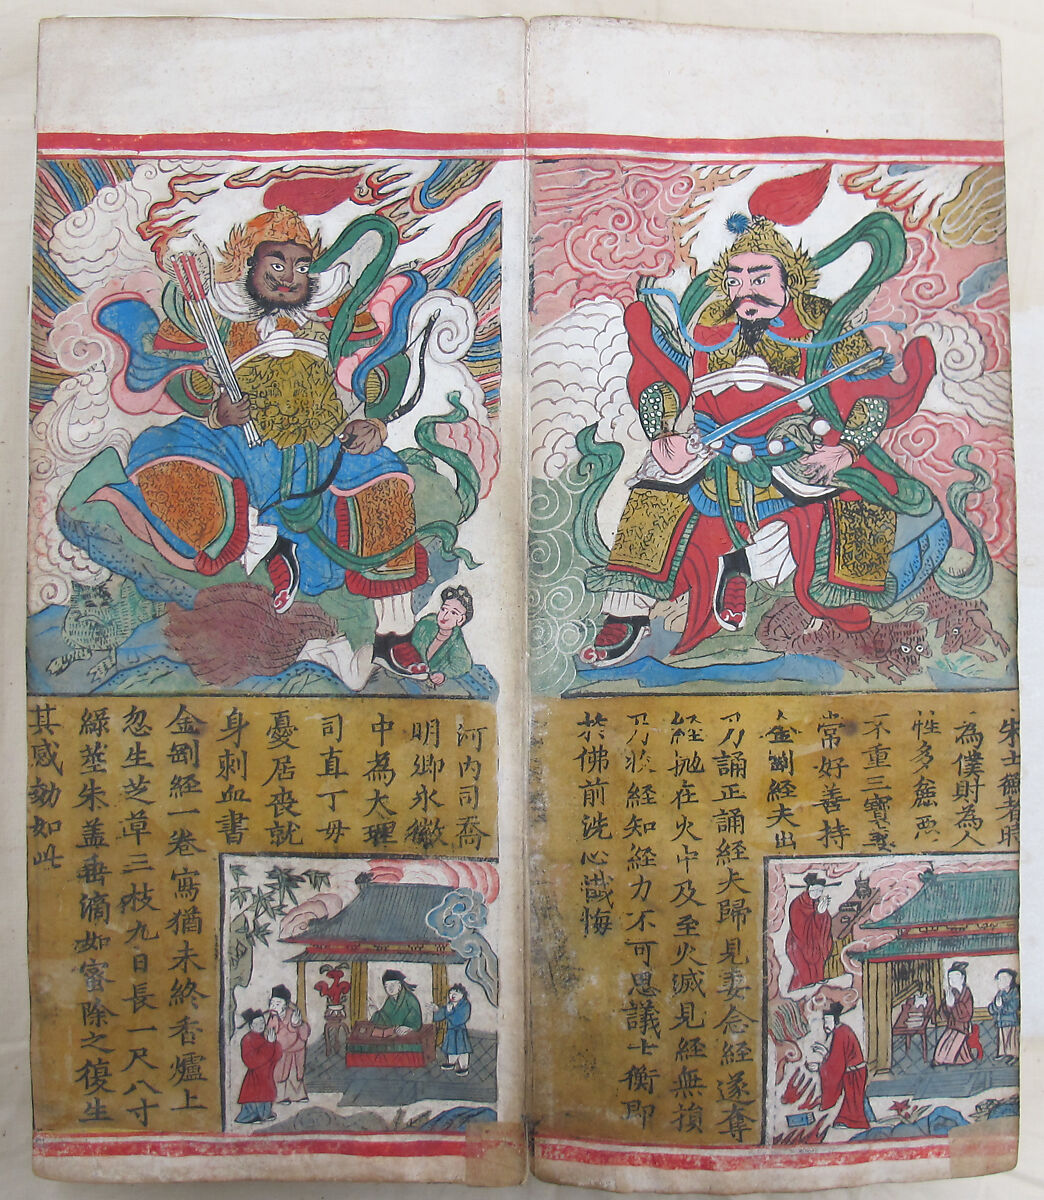 宋士衡者時
為僕財為人
性多
不重三寶妻
常好善持
金剛經夫出
乃誦正誦經夫歸見妻念經遂奪
經抛在火中及至火滅見經無損
乃 經知經力不可思議士衡即
於佛前洗心懴悔
河内司喬
明卿永徽
中為大理
司直丁毋
憂居喪就
身刺血書
金剛經一卷寫猶未終香爐上
忽生芝草三枝九日長一尺八寸
綠莖朱盖垂滴如蜜除之復生
其感効如此